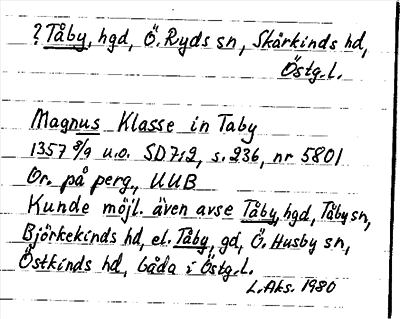 ? Tåby, hgd, Ö. Ryds sn, Skärkinds hd,
Östg.l.
Magnus Klasse in Taby
1357 8/9 u.o. SD7:2, s. 236, nr 5801
Or. på perg., UUB
Kunde möjl. även avse Tåby, hgd, Tåby sn,
Björkekinds hd, el. Tåby, gd, Ö. Husby sn,
Östkinds hd, båda i Östg.l.
L. Aks. 1980